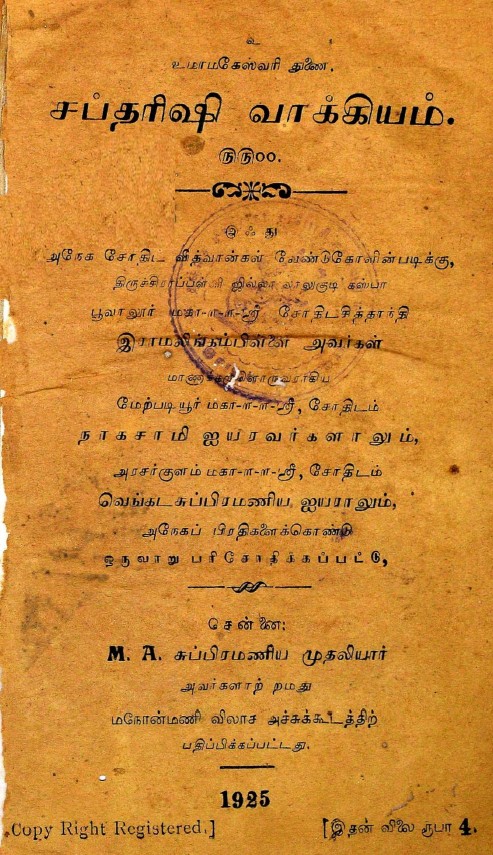 உ
உமாமகேஸ்வரி துணை.
சப்தரிஷி வாக்கியம்.
௫௫௦௦.
இஃது
அநேக சோதிட வித்வான்கள் வேண்டுகோளின்படிக்கு,
திருச்சிராப்பள்ளி ஜில்லா லாலுகுடி கஸ்பா
பூவாளூர் மகா-௱-௱-ஸ்ரீ சோதிடசித்தாந்தி
இராமலிங்கம்பிள்ளை அவர்கள்
மாணாக்கரிலொருவராகிய
மேற்படியூர் மகா-௱-௱-ஸ்ரீ, சோதிடம்
நாகசாமி ஐயரவர்களாலும்,
அரசர்குளம் மகா-௱-௱-ஸ்ரீ, சோதிடம்
வெங்கடசுப்பிரமணிய ஐயராலும்,
அநேகப் பிரதிகளைக்கொண்டு
ஒருவாறு பரிசோதிக்கப்பட்டு,
சென்னை:
M. A. சுப்பிரமணிய முதலியார்
அவர்களாற் றமது
மநோன்மணி விலாச அச்சுக்கூடத்திற்
பதிப்பிக்கப்பட்டது.
1925
Copy Right Registered.] [இதன் விலை ரூபா 4.